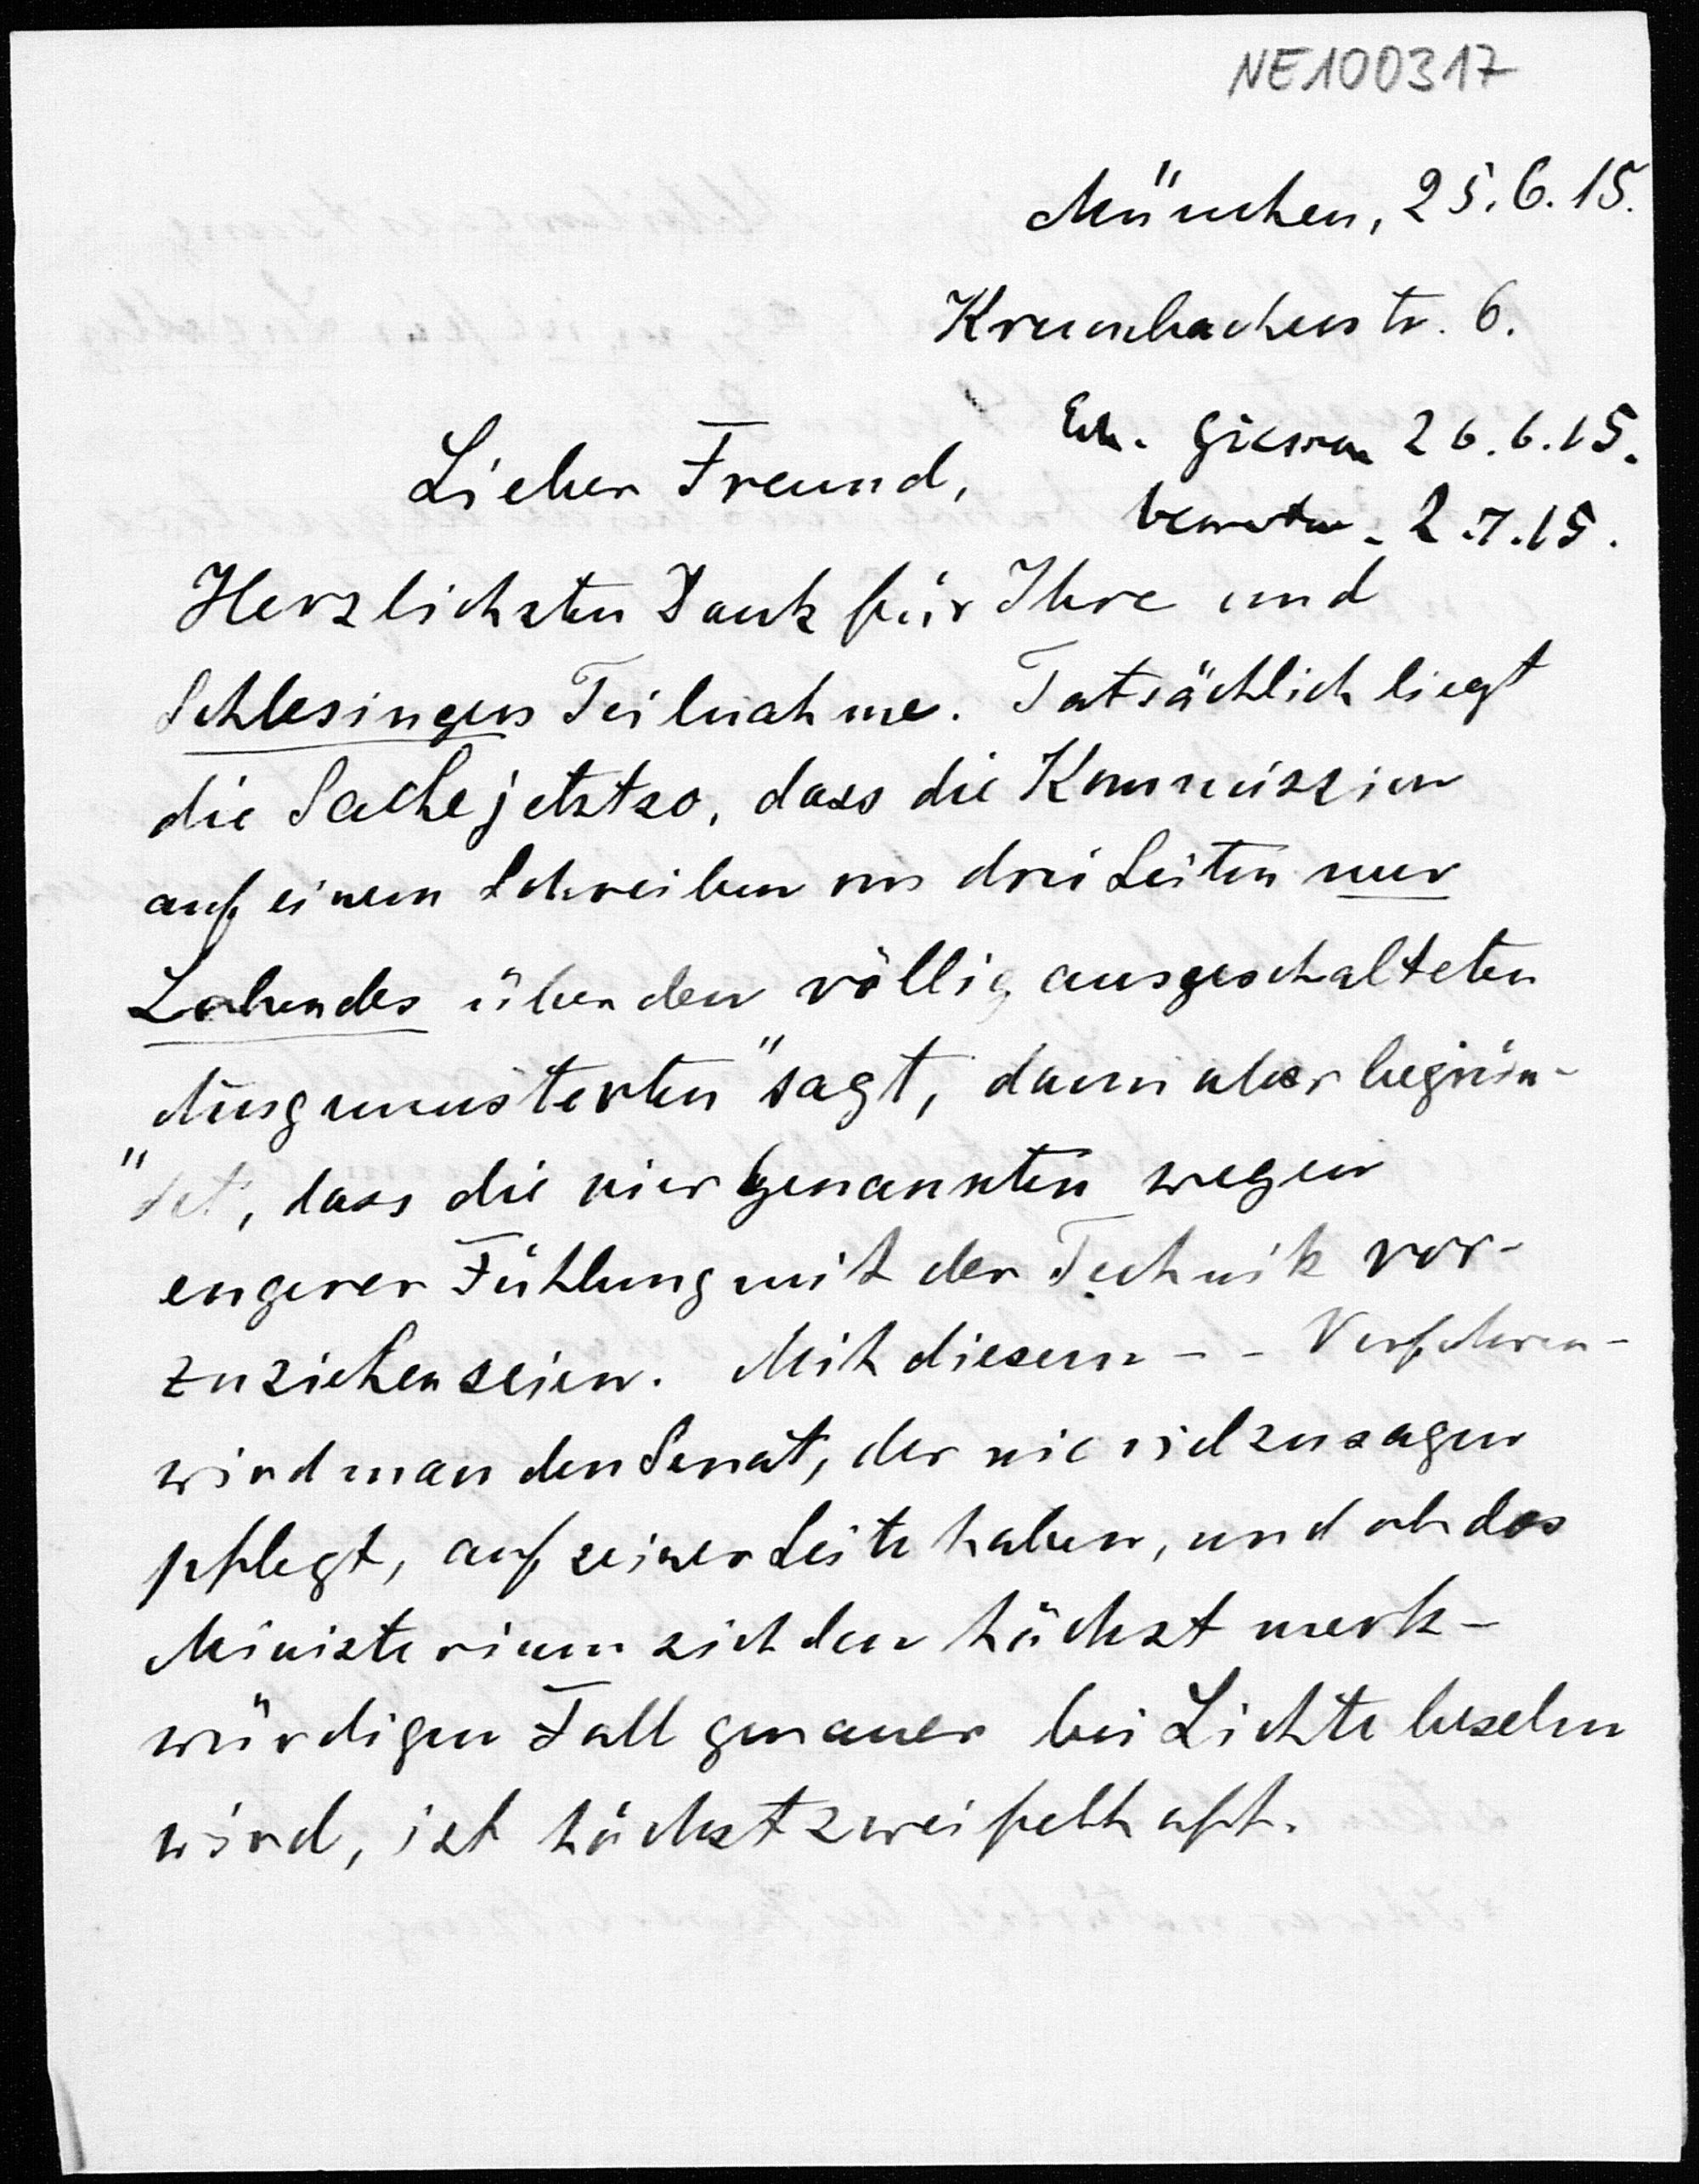 NE100317
München, 25.6.15.
Krumbacherstr. 6.
Erh. Giessen 26.6.15.
beantw. 2.7.15.
Lieber Freund,
Herzlichsten Dank für Ihre und
Schlesingers Teilnahme. Tatsächlich liegt
die Sache jetzt so, dass die Kommission
auf einem Schreiben von drei Seiten nur
Lobendes über den völlig ausgeschalteten
"Ausgemusterten" sagt, dann aber begrün-
det, dass die vier genannten wegen
engerer Fühlung mit der Technik vor-
zuziehen seien. Mit diesem -- Verfahren -
wird man den Senat, der nie viel zu sagen
pflegt, auf seiner Seite haben, und ob das
Ministerium sich den höchst merk-
würdigen Fall genauer bei Lichte besehen
wird, ist höchst zweifelhaft.